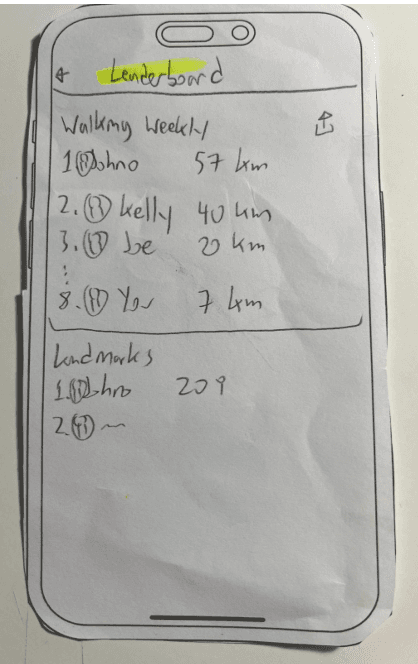 ← Leaderboard
Walking Weekly
1. Johno 57 km
2. Kelly 40 km
3. be 20 km
⋮
8. You 7 km
Landmarks
1. Johno 209
2. ~